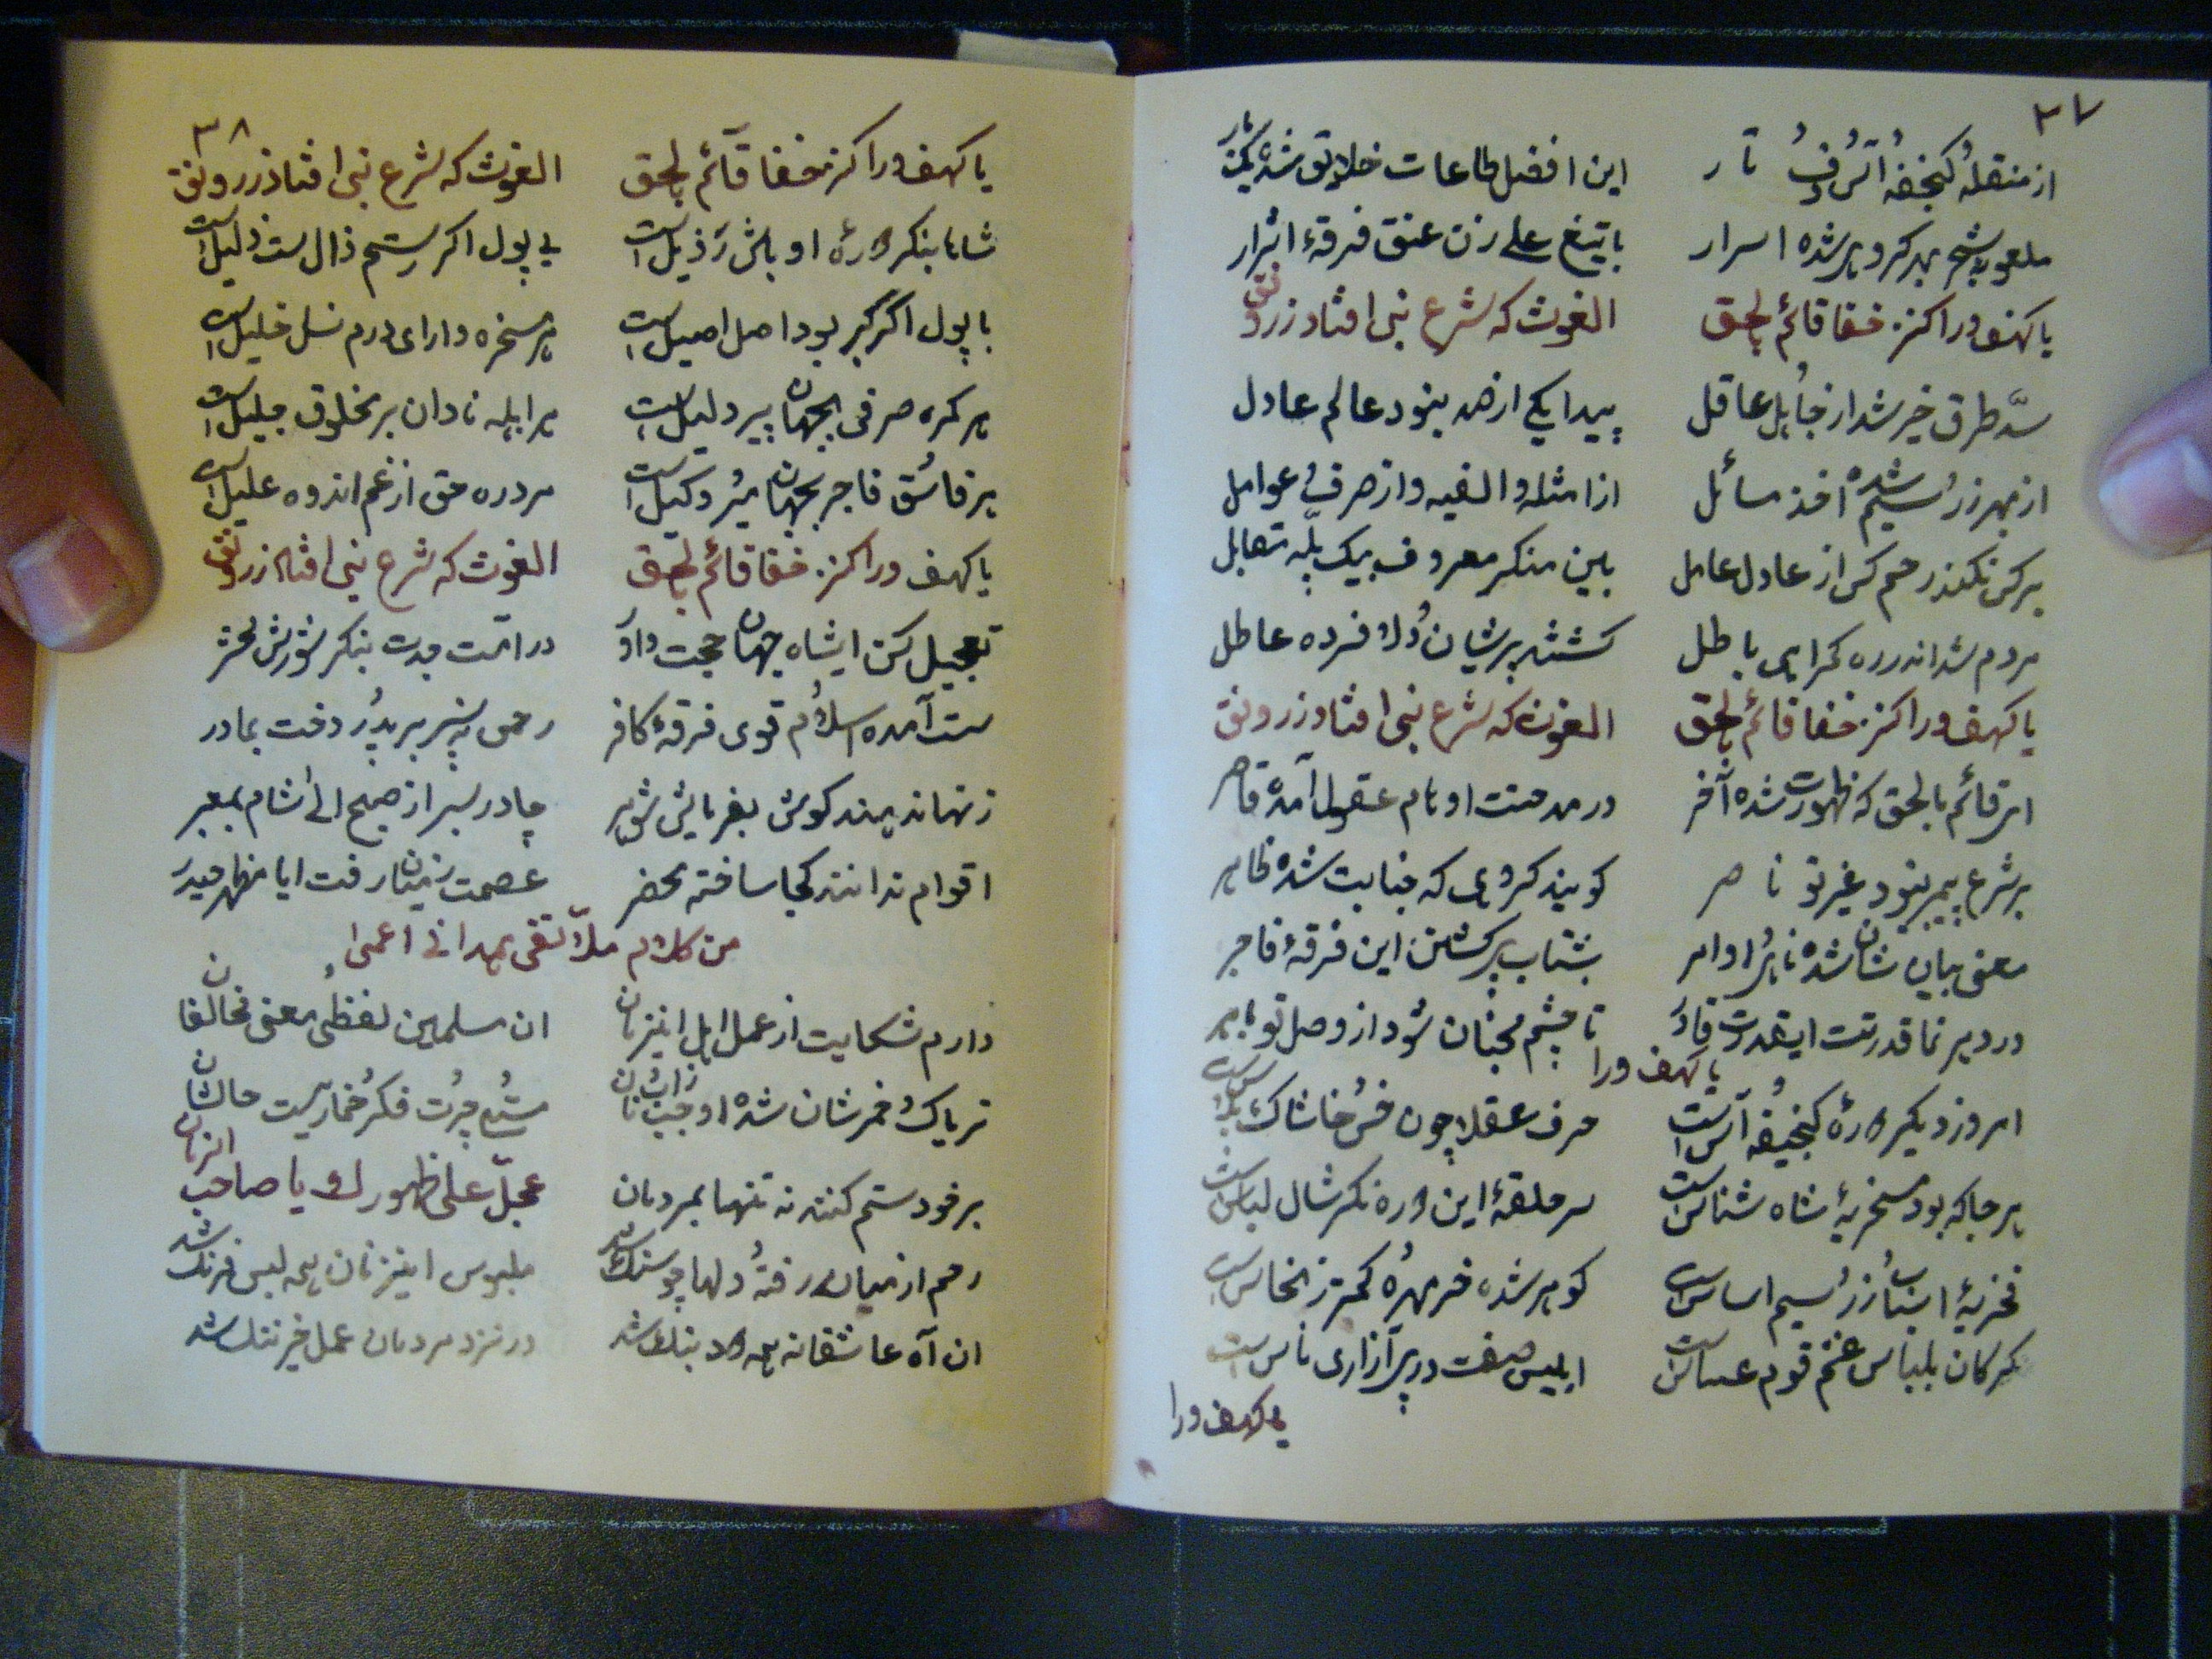 ۳۷
از منقله گنجفه آس و ف تار این افضل طاعات خلایق شده یکبار
ملعونه شجر بهر گروهی شده اسرار با تیغ علی زن عنق فرقهٔ اشرار
یا کهف ورا کنز خفا قائم بالحق الغوث که شرع نبی افتاد ز رونق
سدّ طرق خیر شد از جاهل عاقل پیدا یکی از صد بنود عالم عادل
از بهر زر و سیم شده اخذ مسائل از امثله و الفیه و از صرف و عوامل
هرکس نکند رحم کس از عادل عامل بین منکر معروف بیک پلّه تقابل
مردم شد اندر ره گمراهی باطل گشتند پریشان و دل افرده عاطل
یا کهف ورا کنز خفا قائم بالحق الغوث که شرع نبی افتاد ز رونق
ای قائم بالحق که ظهورت شده آخر در مدحتت اوهام عقول آمده قاصر
بر شرع پیمبر نبود غیر تو ناصر گویند گروهی که جنابت شده ظاهر
معنی بیان شان شده ناهی اوامر بشتاب پی کشتن این فرقهٔ فاجر
در دهر نما قدرتت ایقدرت قادر تا چشم محبان شود از وصل تو باهر
یا کهف ورا
امروز دیگر دورهٔ گنجیفه آس است حرف عقلا چون خس و خاشاک پلاس است
هر جا که بود مسخرهٔ شاه شناس است سر حلقهٔ این دوره نگر شال لباس است
فخریهٔ اینان زر و سیم اساس است گوهر شده خرمهره و کمتر ز نخاس است
گرگان بلباس غنم قوم عساس است ابلیس صفت در پی آزاری ناس است
یا کهف ورا
۳۸
یا کهف ورا کنز خفا قائم بالحق الغوث که شرع نبی افتاد ز رونق
شاها بنگر دورهٔ اوباش رذیل است بی پول اگر رستم زال است ذلیل است
با پول اگر گبر بود اصل اصیل است هر مسخره دارای درم نسل خلیل است
هر کمره صرفی بجهان پیر دلیل است هر ابله نادان بر مخلوق جلیل است
هر فاسق فاجر بجهان میر وکیل است مرد ره حق از غم اندوه علیل است
یا کهف ورا کنز خفا قائم بالحق الغوث که شرع نبی افتاد ز رونق
تعجیل کن ایشاه جهان حجت داور در امّت جدت بنگر شورش محشر
سست آمده اسلام قوی فرقهٔ کافر رحمی نه پسر بر پدر و دخت بمادر
زنها ندهند گوش بفرمایش شوهر چادر بسر از صبح الی شام بمعبر
اقوام ندانند کجا ساخته محضر عصمت ز میان رفت ایا مظهر حیدر
من کلام ملا تقی همدانی اعمی
دارم شکایت از عمل اهل اینزمان ان مسلمین لفظی و معنی مخالفان
تریاک و خمرشان شده اوجب ز آب و نان مستی و چرت فکر خماریست حالشان
بر خود ستم کنند نه تنها بمردمان عجّل علی ظهورک یا صاحب الزمان
رحم از میان رفته و دلها چو سنگ شد ملبوس اینزنان همه لبس فرنگ شد
ان آه عاشقانه همه دود بنگ شد در نزد مردمان عمل خیر ننگ شد